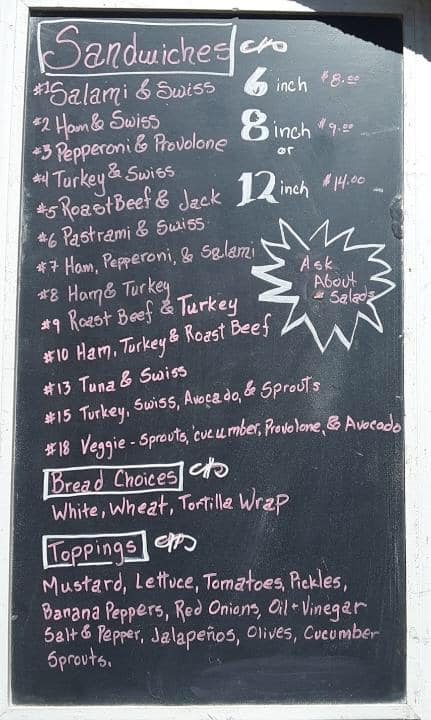 Sandwiches
#1 Salami & Swiss
#2 Ham & Swiss
#3 Pepperoni & Provolone
#4 Turkey & Swiss
#5 Roast Beef & Jack
#6 Pastrami & Swiss
#7 Ham, Pepperoni, & Salami
#8 Ham & Turkey
#9 Roast Beef & Turkey
#10 Ham, Turkey & Roast Beef
#13 Tuna & Swiss
#15 Turkey, Swiss, Avocado, & Sprouts
#18 Veggie - Sprouts, cucumber, Provolone, & Avocado
6 inch $8.00
8 inch $9.00
or
12 inch $14.00
Ask
About
Salads
Bread Choices
White, Wheat, Tortilla Wrap
Toppings
Mustard, Lettuce, Tomatoes, Pickles,
Banana Peppers, Red Onions, Oil + Vinegar
Salt & Pepper, Jalapeños, Olives, Cucumber
Sprouts.